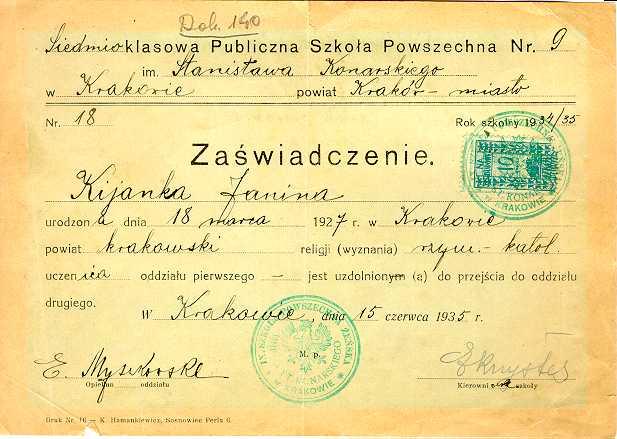 Dok. 140
Siedmioklasowa Publiczna Szkoła Powszechna Nr. 9
im. Stanisława Konarskiego
w Krakowie powiat Kraków - miasto
Nr. 18 Rok szkolny 1934/35
Zaświadczenie.
Kijanka Janina
urodzona dnia 18 marca 1927 r. w Krakowie
powiat krakowski religji (wyznania) rzym.-katol.
uczenica oddziału pierwszego - jest uzdolnionym (ą) do przejścia do oddziału
drugiego.
W Krakowie, dnia 15 czerwca 1935 r.
M. p.
W KRAKOWIE
E.
Opiekun oddziału Kierowni szkoły
Druk Nr. 16 — K. Hamankiewicz, Sosnowiec Perla 6.